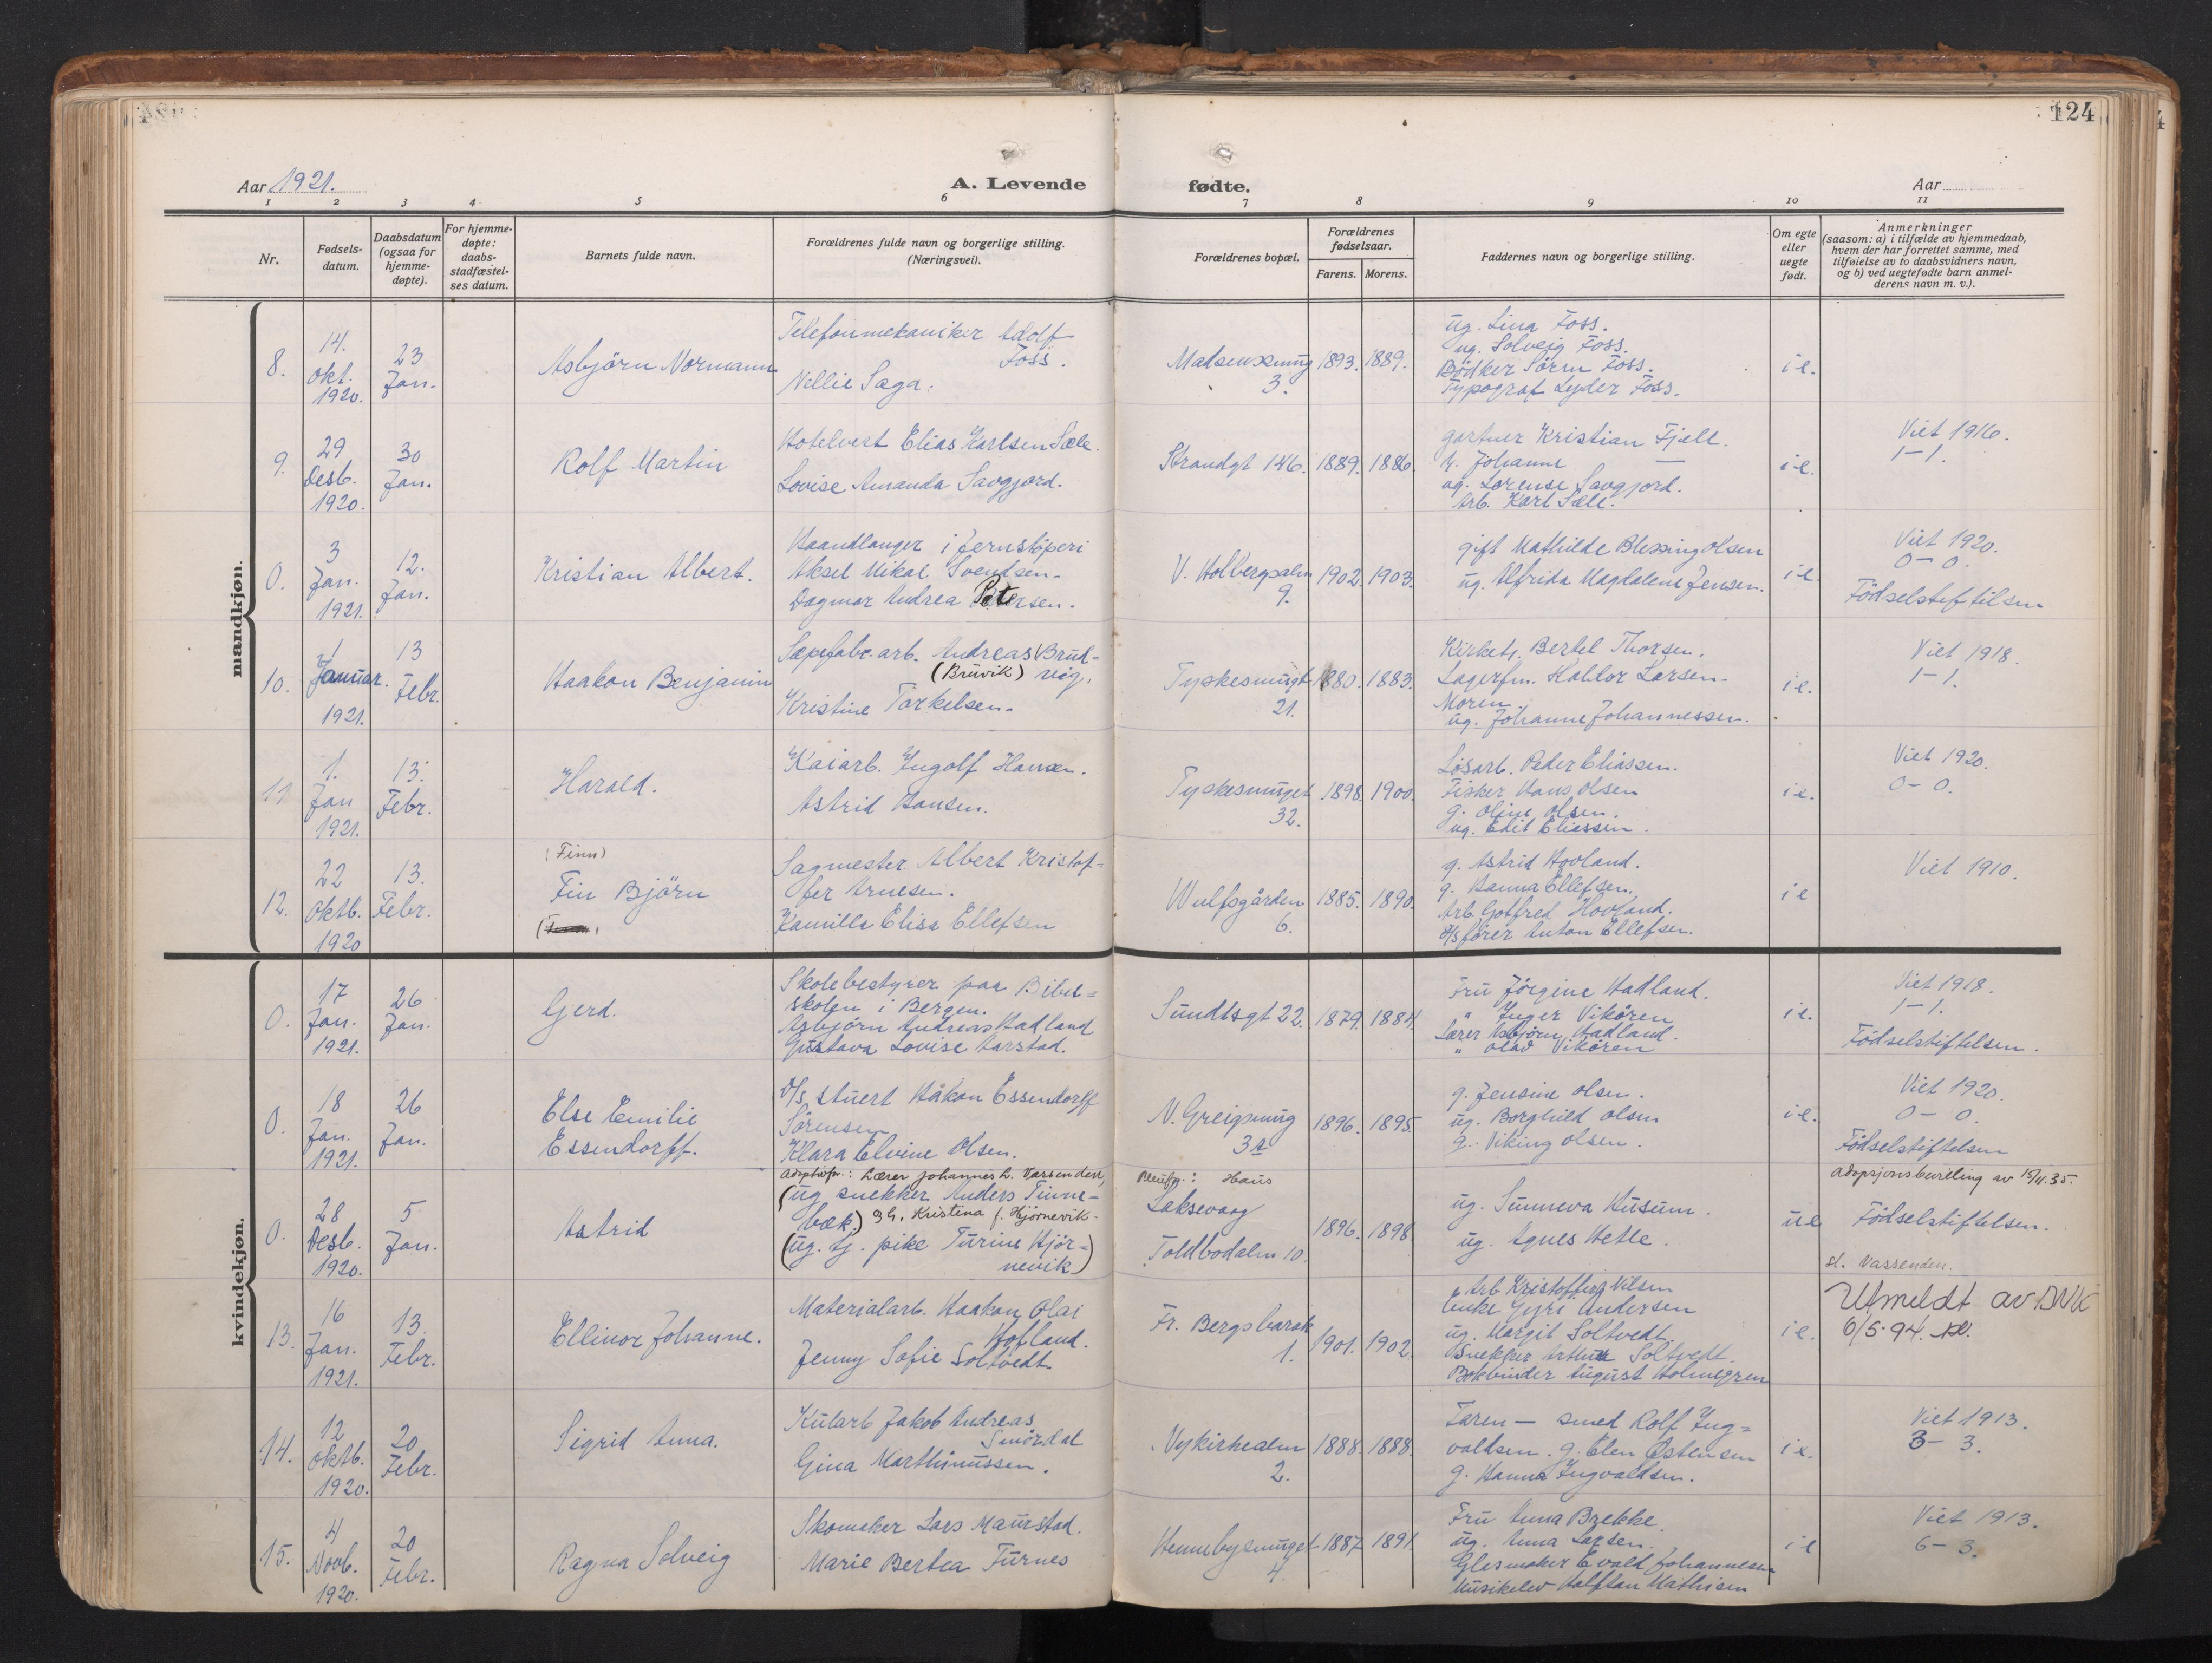 124
Aar 1921.
A. Levende
fødte.
Aar
1 2 3 4 5 6 7 8 9 10 11
Nr.
Fødsels-
datum.
Daabsdatum
(ogsaa for
hjemme-
døpte).
For hjemme-
døpte:
daabs-
stadfæstel-
ses datum.
Barnets fulde navn.
Forældrenes fulde navn og borgerlige stilling.
(Næringsvei).
Forældrenes bopæl.
Forældrenes
fødselsaar.
Farens. Morens.
Faddernes navn og borgerlige stilling.
Om egte
eller
uegte
født.
Anmerkninger
(saasom: a) i tilfælde av hjemmedaab,
hvem der har forrettet samme, med
tilføielse av to daabsvidners navn,
og b) ved uegtefødte barn anmel-
derens navn m. v.).
mandkjøn.
8.
14.
Okt.
1920.
23
Jan.
Asbjörn Normann
Telefonmekaniker Adolf
Foss.
Nellie Saga.
Madsensmug
3.
1893. 1889.
ug. Lina Foss.
ug. Solveig Foss.
Bödker Sören Foss.
Typograf Lyder Foss.
i e.
9.
29
Desb.
1920.
30
Jan.
Rolf Martin
Hotelvert Elias Karlsen Sæle.
Lovise Amanda Savgjord.
Strandgt 146.
1889. 1886.
gartner Kristian Fjell.
h. Johanne —
ug. Lorense Savgjord.
Arb. Karl Sæle.
i e.
Viet 1916.
1-1.
0.
3
Jan.
1921.
12.
Jan.
Kristian Albert.
Haandlanger i Jernstöperi
Aksel Mikal Svendsen-
Dagmar Andrea Petersen.
V. Holbergsalm
9.
1902. 1903.
gift Mathilde Blessing Olsen
ug. Alfrida Magdalene Jensen.
i e.
Viet 1920.
0-0.
Födselstiftelsen
10.
1
Januar.
1921.
13
Febr.
Haakon Benjamin
Sæpefabr. arb. Andreas Brud-
(Bruvik) vig.
Kristine Torkelsen.
Tyskesmugt
21.
1880. 1883.
Kirketj. Bertel Thorsen.
Lagerfm. Haldor Larsen-
Moren.
ug. Johanne Johannessen.
i e.
Viet 1918.
1-1.
11
1.
Jan
1921.
13.
Febr.
Harald.
Kaiarb. Ingolf Hansen.
Astrid Hansen.
Tyskesmuget
32.
1898. 1900.
Lösarb. Peder Eliassen.
Fisker Hans Olsen
g. Oline Olsen.
ug. Edit Eliassen.
i e.
Viet 1920.
0-0.
12.
22
Oktb.
1920
13.
Febr.
(Finn)
Fin Björn
Sagmester Albert Kristof-
fer Arnesen.
Kamilla Elisa Ellefsen
Wulfsgården
6.
1885. 1890.
g. Astrid Hovland.
g. Hanna Ellefsen.
Arb. Gotfred Hovland.
D/s förer Anton Ellefsen.
i e
Viet 1910.
kvindekjøn.
0.
17
Jan.
1921.
26
Jan.
Gjerd.
Skolebestyrer paa Bibel=
skolen i Bergen.
Asbjörn Andreas Hadland
Gustava Lovise Aarstad.
Sundtsgt 22.
1879. 1884.
Fru Jörgine Hadland.
" Inger Vikören
Lærer Asbjörn Hadland.
" Olav Vikören
i e.
Viet 1918.
1-1.
Födselstiftelsen.
0.
18
Jan.
1921.
26
Jan.
Else Emilie
Essendorff.
D/s stuert Håkon Essendorff
Sörensen
Klara Elvine Olsen.
N. Greigsmug
3a
1896. 1895.
g. Jensine Olsen.
ug. Borghild Olsen
g. Viking Olsen.
i e.
Viet 1920.
0-0.
Födselstiftelsen
0.
28
Desb.
1920.
5
Jan.
Astrid
Adoptivfr.: Lærer Johannes L. Vassenden,
(ug. snekker Anders Tinne-
bæk.) og h. Kristina f. Hjörnevik.
(ug. tj. pike Turine Hjör=)
nevik)
Haus
Laksevaag
Toldbodalm 10.
1896. 1898.
ug. Sunneva Husum.
ug. Agnes Hetle.
u e
Adopsjonsbevilling av 15/11.35.
Födselstiftelsen.
sl. Vassenden.
13.
16
Jan.
1921.
13.
Febr.
Ellinor Johanne.
Materialarb. Haakon Olai
Hofland.
Jenny Sofie Soltvedt
Fr. Bergsbarak
1.
1901. 1902.
Arb Kristoffer Nilsen
Enke Gyri Andersen
ug. Margit Soltvedt.
Snekker Arthur Soltvedt.
Bokbinder August Holmegren
i e.
Utmeldt av DNK
6/5-94.
14.
12
Oktb.
1920.
20
Febr.
Sigrid Anna.
Kularb Jakob Andreas
Smördal
Gina Marthinussen.
Nykirkealm
2.
1888. 1888.
Faren — smed Rolf Ing=
valdsen. g. Elen Östensen
g. Hanna Ingvaldsen.
i e.
Viet 1913.
3-3.
15.
4
Novb.
1920.
20
Febr.
Ragna Solveig
Skomaker Lars Maurstad.
Marie Bertea Furnes
Hennebysmuget
4.
1887 1891
Fru Anna Brekke.
ug. Anna Larsen.
Glasmaker Evald Johannesen
Musikelev Halfdan Mathisen
i e
Viet 1913.
6-3.